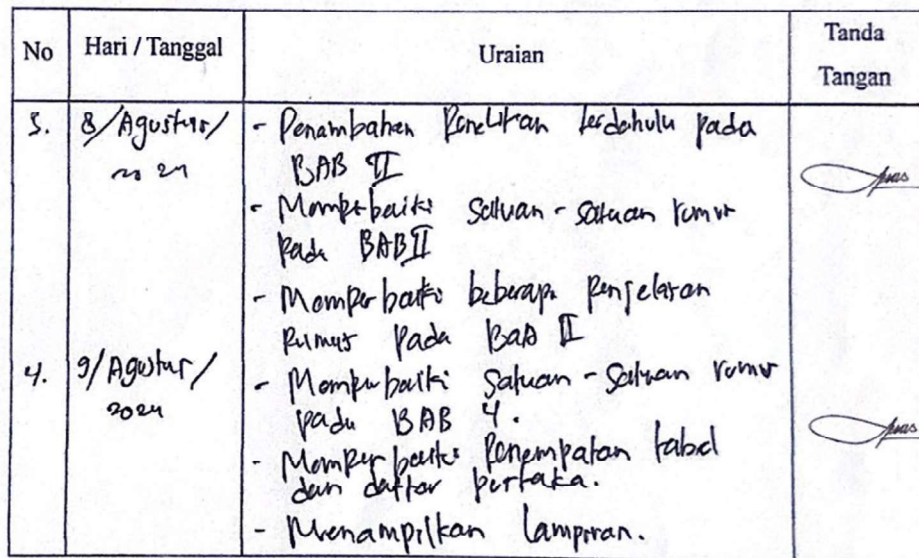 No Hari / Tanggal Uraian Tanda
Tangan
3. 8/Agustus/ - Penambahan Penelitian terdahulu pada
2024 BAB II
- Memperbaiki satuan-satuan rumus
pada BAB II
- Memperbaiki beberapa penjelasan
Rumus pada BAB II
4. 9/Agustus/ - Memperbaiki satuan-satuan rumus
2024 pada BAB 4.
- Memperbaiki Penempatan tabel
dan daftar pustaka.
- Menampilkan lampiran.